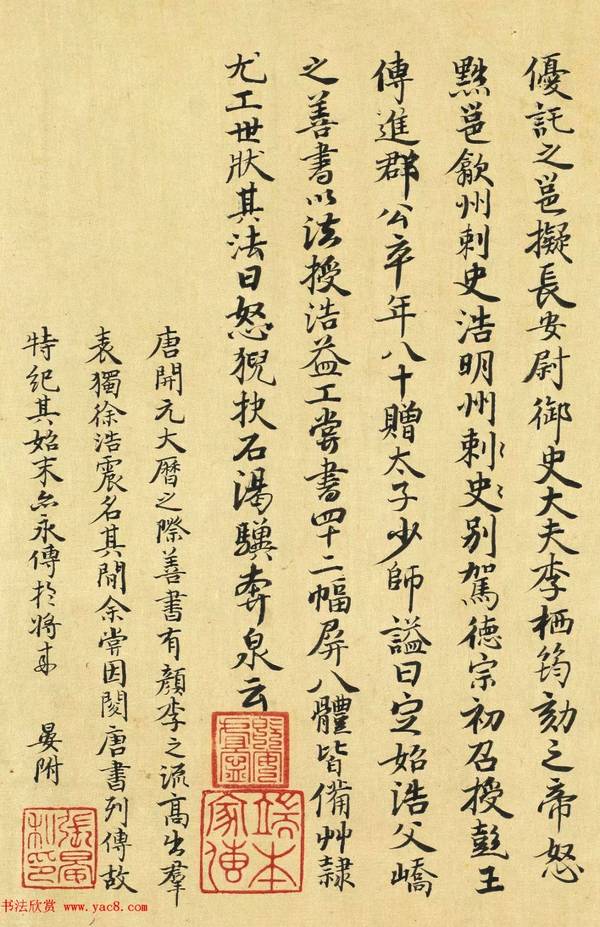 優託之邕擬長安尉御史大夫李栖筠劾之帝怒
黜邕歙州刺史浩明州刺史別駕德宗初召授彭王
傅進群公卒年八十贈太子少師謚曰定始浩父嶠
之善書以法授浩益工嘗書四十二幅屏八體皆備艸隸
尤工世狀其法曰怒猊抉石渴驥奔泉云
唐開元大曆之際善書有顏李之流高出羣
表獨徐浩震名其間余嘗因閱唐書列傳故
特紀其始末亦永傳於將來
晏附
端本家傳
張晏私印
书法欣赏 www.yac8.com